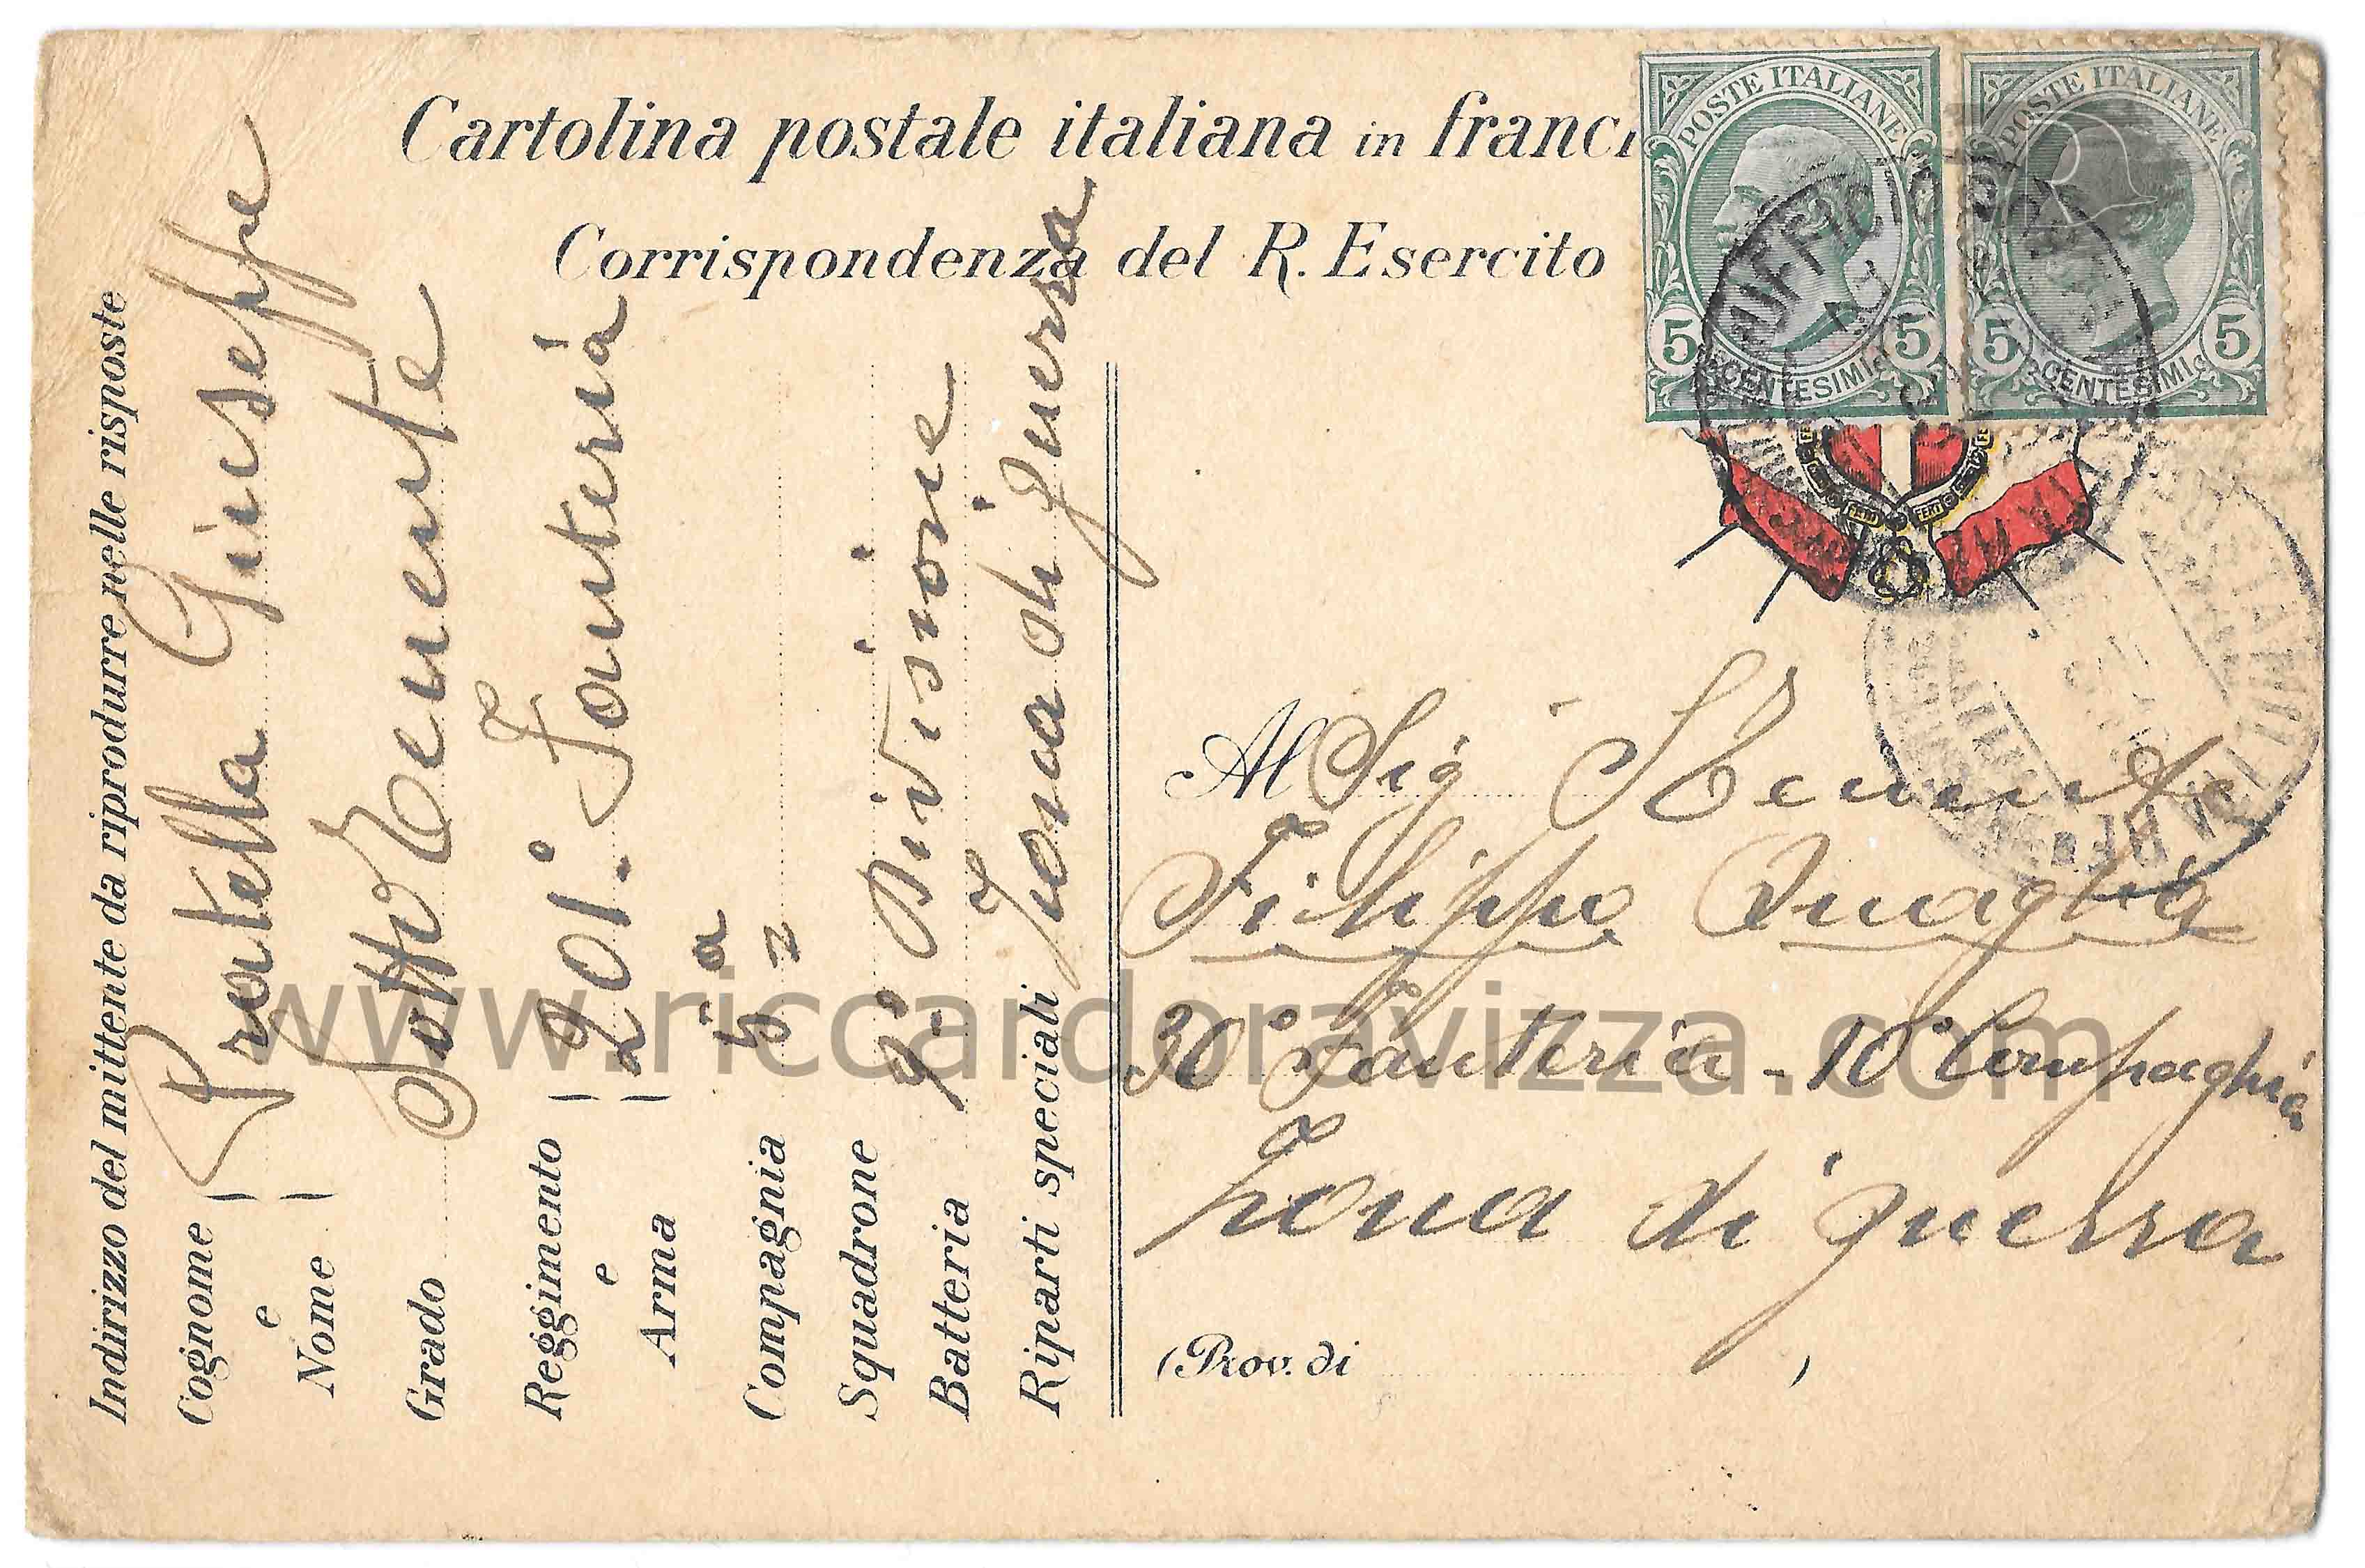 Cartolina postale italiana in franci
Corrispondenza del R. Esercito
POSTE ITALIANE
5 CENTESIMI 5
POSTE ITALIANE
5 CENTESIMI 5
FERT
FERT
Indirizzo del mittente da riprodurre nelle risposte
Cognome e Nome Pratella Giuseppe
Grado Sotto Tenente
Reggimento e Arma 201° Fanteria
Compagnia 5ª
Squadrone
Batteria 9ª Divisione
Riparti speciali Zona di guerra
Al Sig STenente
Filippo Quaglia
30° Fanteria - 10ª Compagnia
Zona di guerra
(Prov. di )
www.riccardoravizza.com